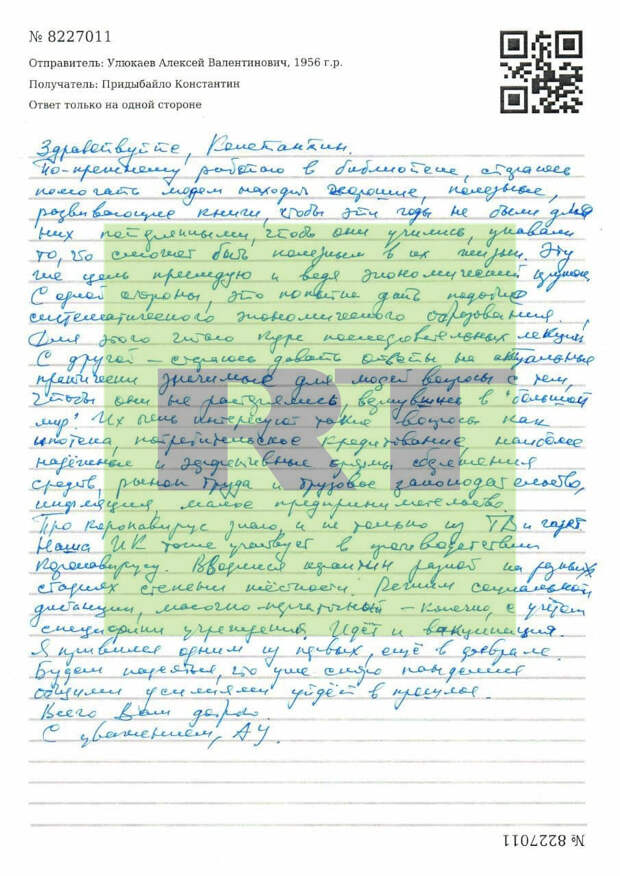 № 8227011
Отправитель: Улюкаев Алексей Валентинович, 1956 г.р.
Получатель: Придыбайло Константин
Ответ только на одной стороне
Здравствуйте, Константин.
По-прежнему работаю в библиотеке, стараюсь
помогать людям находить хорошие, полезные,
развивающие книги, чтобы эти годы не были для
них потерянными, чтобы они учились, узнавали
то, что сможет быть полезным в их жизни. Эту
же цель преследую и ведя экономический кружок.
С одной стороны, это попытка дать подобие
систематического экономического образования.
Для этого читаю курс последовательных лекций.
С другой – стараюсь давать ответы на актуальные
практически значимые для людей вопросы с тем,
чтобы они не растерялись, вернувшись в "большой
мир". Их очень интересуют такие вопросы как
ипотека, потребительское кредитование, наиболее
надёжные и эффективные формы сбережения
средств, рынок труда и трудовое законодательство,
инфляция, малое предпринимательство.
Про коронавирус знаю, и не только из ТВ и газет.
Наша ИК тоже участвует в противодействии
коронавирусу. Вводился карантин разной на разных
стадиях степени жёсткости. Режим социальной
дистанции, масочно-перчаточный – конечно, с учётом
специфики учреждения. Идёт и вакцинация.
Я привился одним из первых, ещё в феврале.
Будем надеяться, что уже скоро пандемия
общими усилиями уйдёт в прошлое.
Всего Вам доброго.
С уважением, АУ.
RT
№ 8227011